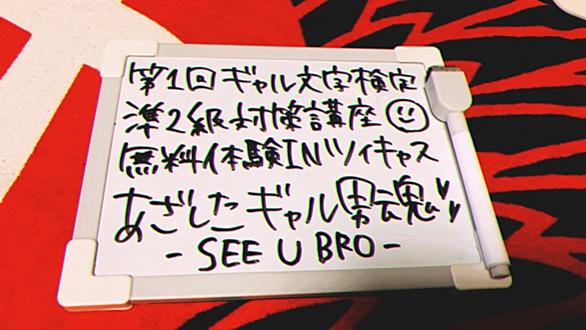 第1回ギャル文字検定
準2級対策講座☺
無料体験INツイキャス
あざしたギャル男魂♥♥
- SEE U BRO -